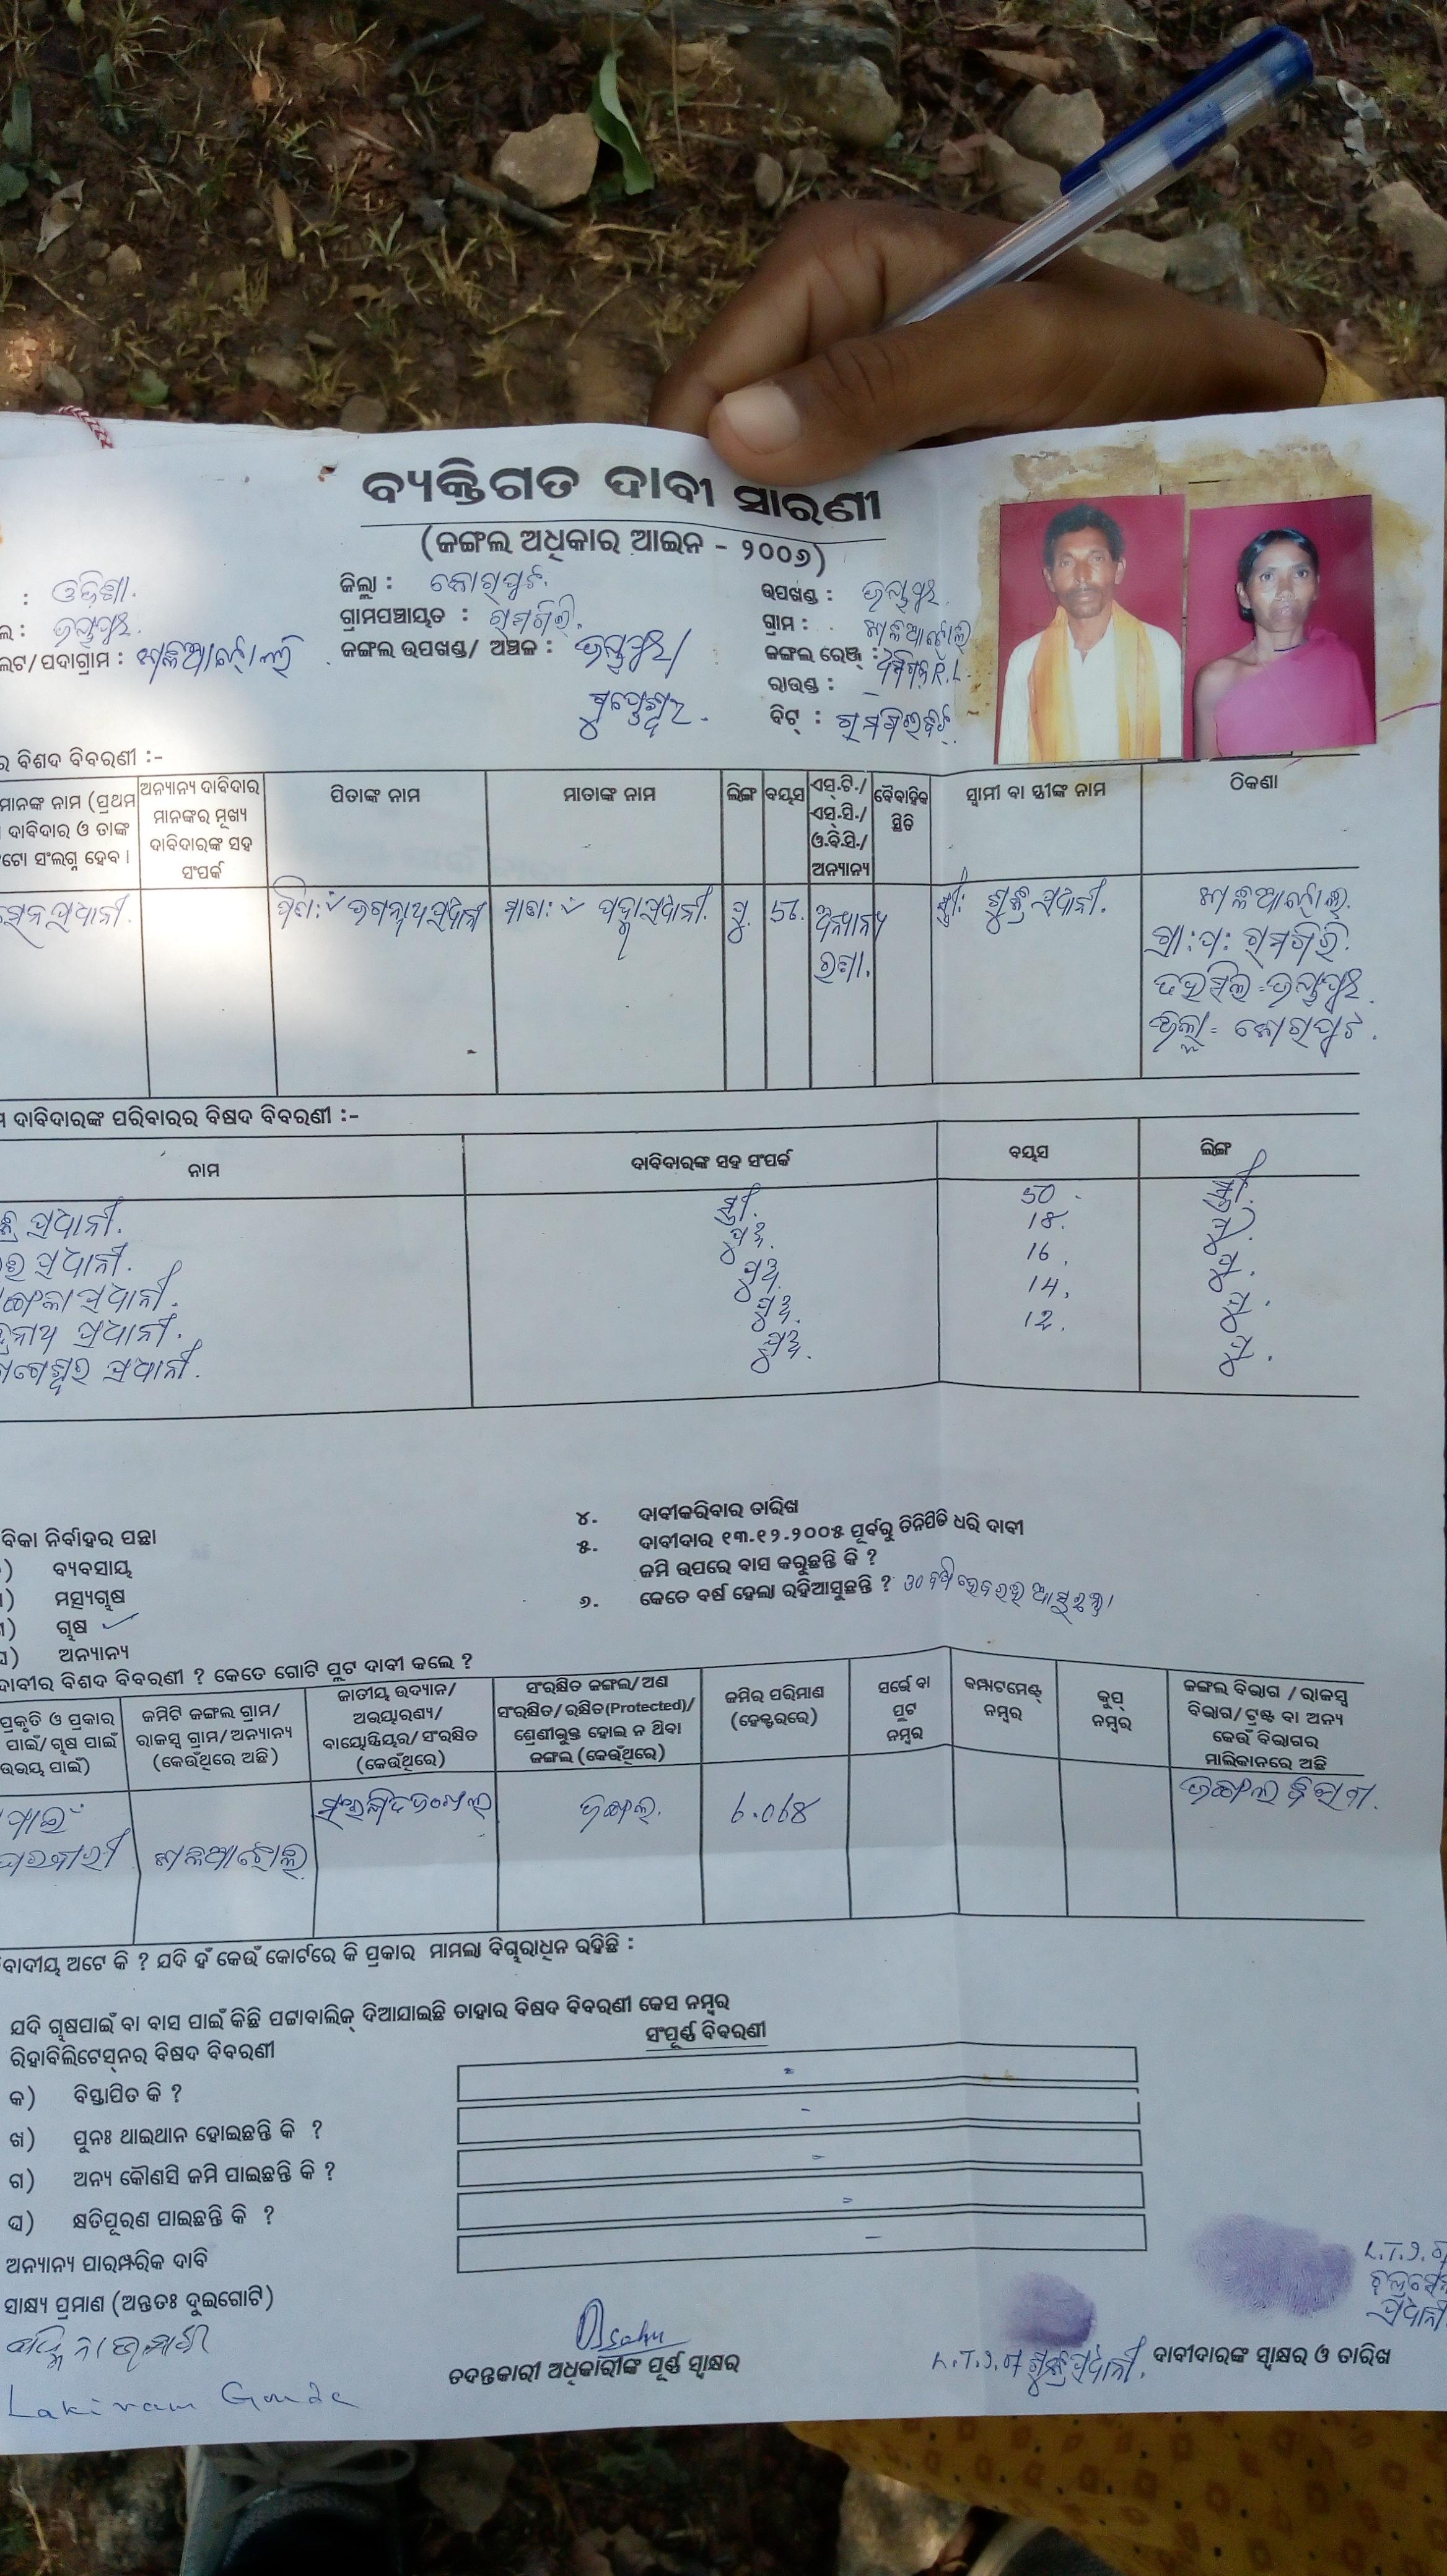 ବ୍ୟକ୍ତିଗତ ଦାବୀ ସାରଣୀ
(ଜଙ୍ଗଲ ଅଧିକାର ଆଇନ - ୨୦୦୬)
: ଓଡ଼ିଶା. ଜିଲ୍ଲା : କୋରାପୁଟ. ଉପଖଣ୍ଡ :
ଗ୍ରାମପଞ୍ଚାୟତ : ରାମଗିରି. ଗ୍ରାମ :
ଲଟ/ପଦାଗ୍ରାମ : ଜଙ୍ଗଲ ଉପଖଣ୍ଡ/ ଅଞ୍ଚଳ : ଜଙ୍ଗଲ ରେଞ୍ଜ୍ :
ରାଉଣ୍ଡ :
ବିଟ୍ :
ର ବିଶଦ ବିବରଣୀ :-
ମାନଙ୍କ ନାମ (ପ୍ରଥମ
ଦାବିଦାର ଓ ତାଙ୍କ
ଟୋ ସଂଲଗ୍ନ ହେବ ।
ଅନ୍ୟାନ୍ୟ ଦାବିଦାର
ମାନଙ୍କର ମୂଖ୍ୟ
ଦାବିଦାରଙ୍କ ସହ
ସଂପର୍କ
ପିତାଙ୍କ ନାମ
ମାତାଙ୍କ ନାମ
ଲିଙ୍ଗ
ବୟସ
ଏସ୍.ଟି./
ଏସ୍.ସି./
ଓ.ବି.ସି./
ଅନ୍ୟାନ୍ୟ
ବୈବାହିକ
ସ୍ଥିତି
ସ୍ୱାମୀ ବା ସ୍ତ୍ରୀଙ୍କ ନାମ
ଠିକଣା
ପ୍ରଧାନୀ. ପିତା: ଜଗନ୍ନାଥ ପ୍ରଧାନୀ ମାତା: ପଦ୍ମା ପ୍ରଧାନୀ. ପୁ. 56. ଅନ୍ୟାନ୍ୟ ସ୍ତ୍ରୀ: ପ୍ରଧାନୀ.
ରଣା.
ଗ୍ରା:ପ: ରାମଗିରି.
ଜିଲ୍ଲା= କୋରାପୁଟ.
ଦାବିଦାରଙ୍କ ପରିବାରର ବିଷଦ ବିବରଣୀ :-
ନାମ ଦାବିଦାରଙ୍କ ସହ ସଂପର୍କ ବୟସ ଲିଙ୍ଗ
ପ୍ରଧାନୀ. ସ୍ତ୍ରୀ. 50. ସ୍ତ୍ରୀ.
ପ୍ରଧାନୀ. ପୁଅ. 18. ପୁ.
ପ୍ରଧାନୀ. ପୁଅ. 16. ପୁ.
ପ୍ରଧାନୀ. ପୁଅ. 14. ପୁ.
ପ୍ରଧାନୀ. ପୁଅ. 12. ପୁ.
ବିକା ନିର୍ବାହର ପନ୍ଥା
ବ୍ୟବସାୟ
ମତ୍ସ୍ୟଚାଷ
ଚାଷ
ଅନ୍ୟାନ୍ୟ
୪. ଦାବୀକରିବାର ତାରିଖ
୫. ଦାବୀଦାର ୧୩.୧୨.୨୦୦୫ ପୂର୍ବରୁ ତିନିପିଢି ଧରି ଦାବୀ
ଜମି ଉପରେ ବାସ କରୁଛନ୍ତି କି ?
୬. କେତେ ବର୍ଷ ହେଲା ରହିଆସୁଛନ୍ତି ?
ଦାବୀର ବିଶଦ ବିବରଣୀ ? କେତେ ଗୋଟି ପ୍ଲଟ ଦାବୀ କଲେ ?
ପ୍ରକୃତି ଓ ପ୍ରକାର
ପାଇଁ/ ଚାଷ ପାଇଁ
ଉଭୟ ପାଇଁ)
ଜମିଟି ଜଙ୍ଗଲ ଗ୍ରାମ/
ରାଜସ୍ୱ ଗ୍ରାମ/ ଅନ୍ୟାନ୍ୟ
(କେଉଁଥିରେ ଅଛି)
ଜାତୀୟ ଉଦ୍ୟାନ/
ଅଭୟାରଣ୍ୟ/
ବାୟୋସ୍ଫିୟର/ ସଂରକ୍ଷିତ
(କେଉଁଥିରେ)
ସଂରକ୍ଷିତ ଜଙ୍ଗଲ/ ଅଣ
ସଂରକ୍ଷିତ/ ରକ୍ଷିତ(Protected)/
ଶ୍ରେଣୀଭୁକ୍ତ ହୋଇ ନ ଥିବା
ଜଙ୍ଗଲ (କେଉଁଥିରେ)
ଜମିର ପରିମାଣ
(ହେକ୍ଟରରେ)
ସର୍ଭେ ବା
ପ୍ଲଟ
ନମ୍ବର
କମ୍ପାଟମେଣ୍ଟ୍
ନମ୍ବର
କୁପ୍
ନମ୍ବର
ଜଙ୍ଗଲ ବିଭାଗ / ରାଜସ୍ୱ
ବିଭାଗ/ ଟ୍ରଷ୍ଟ ବା ଅନ୍ୟ
କେଉଁ ବିଭାଗର
ମାଲିକାନରେ ଅଛି
ସଂରକ୍ଷିତ ଜଙ୍ଗଲ ଜଙ୍ଗଲ. 6.068 ଜଙ୍ଗଲ ବିଭାଗ.
ବାଦୀୟ ଅଟେ କି ? ଯଦି ହଁ କେଉଁ କୋର୍ଟରେ କି ପ୍ରକାର ମାମଲା ବିଚାରାଧିନ ରହିଛି :
ଯଦି ଚାଷପାଇଁ ବା ବାସ ପାଇଁ କିଛି ପଟ୍ଟାବାଲିକ୍ ଦିଆଯାଇଛି ତାହାର ବିଷଦ ବିବରଣୀ କେସ ନମ୍ବର
ରିହାବିଲିଟେସ୍‌ନର ବିଷଦ ବିବରଣୀ ସଂପୂର୍ଣ୍ଣ ବିବରଣୀ
କ) ବିସ୍ତାପିତ କି ?
ଖ) ପୁନଃ ଥାଇଥାନ ହୋଇଛନ୍ତି କି ?
ଗ) ଅନ୍ୟ କୌଣସି ଜମି ପାଇଛନ୍ତି କି ?
ଘ) କ୍ଷତିପୂରଣ ପାଇଛନ୍ତି କି ?
ଅନ୍ୟାନ୍ୟ ପାରମ୍ପରିକ ଦାବି
ସାକ୍ଷ୍ୟ ପ୍ରମାଣ (ଅନ୍ତତଃ ଦୁଇଗୋଟି)
L.T.I. of
ପ୍ରଧାନୀ
ତଦନ୍ତକାରୀ ଅଧିକାରୀଙ୍କ ପୂର୍ଣ୍ଣ ସ୍ୱାକ୍ଷର L.T.I. of ପ୍ରଧାନୀ. ଦାବୀଦାରଙ୍କ ସ୍ୱାକ୍ଷର ଓ ତାରିଖ
Lakiram Gouda